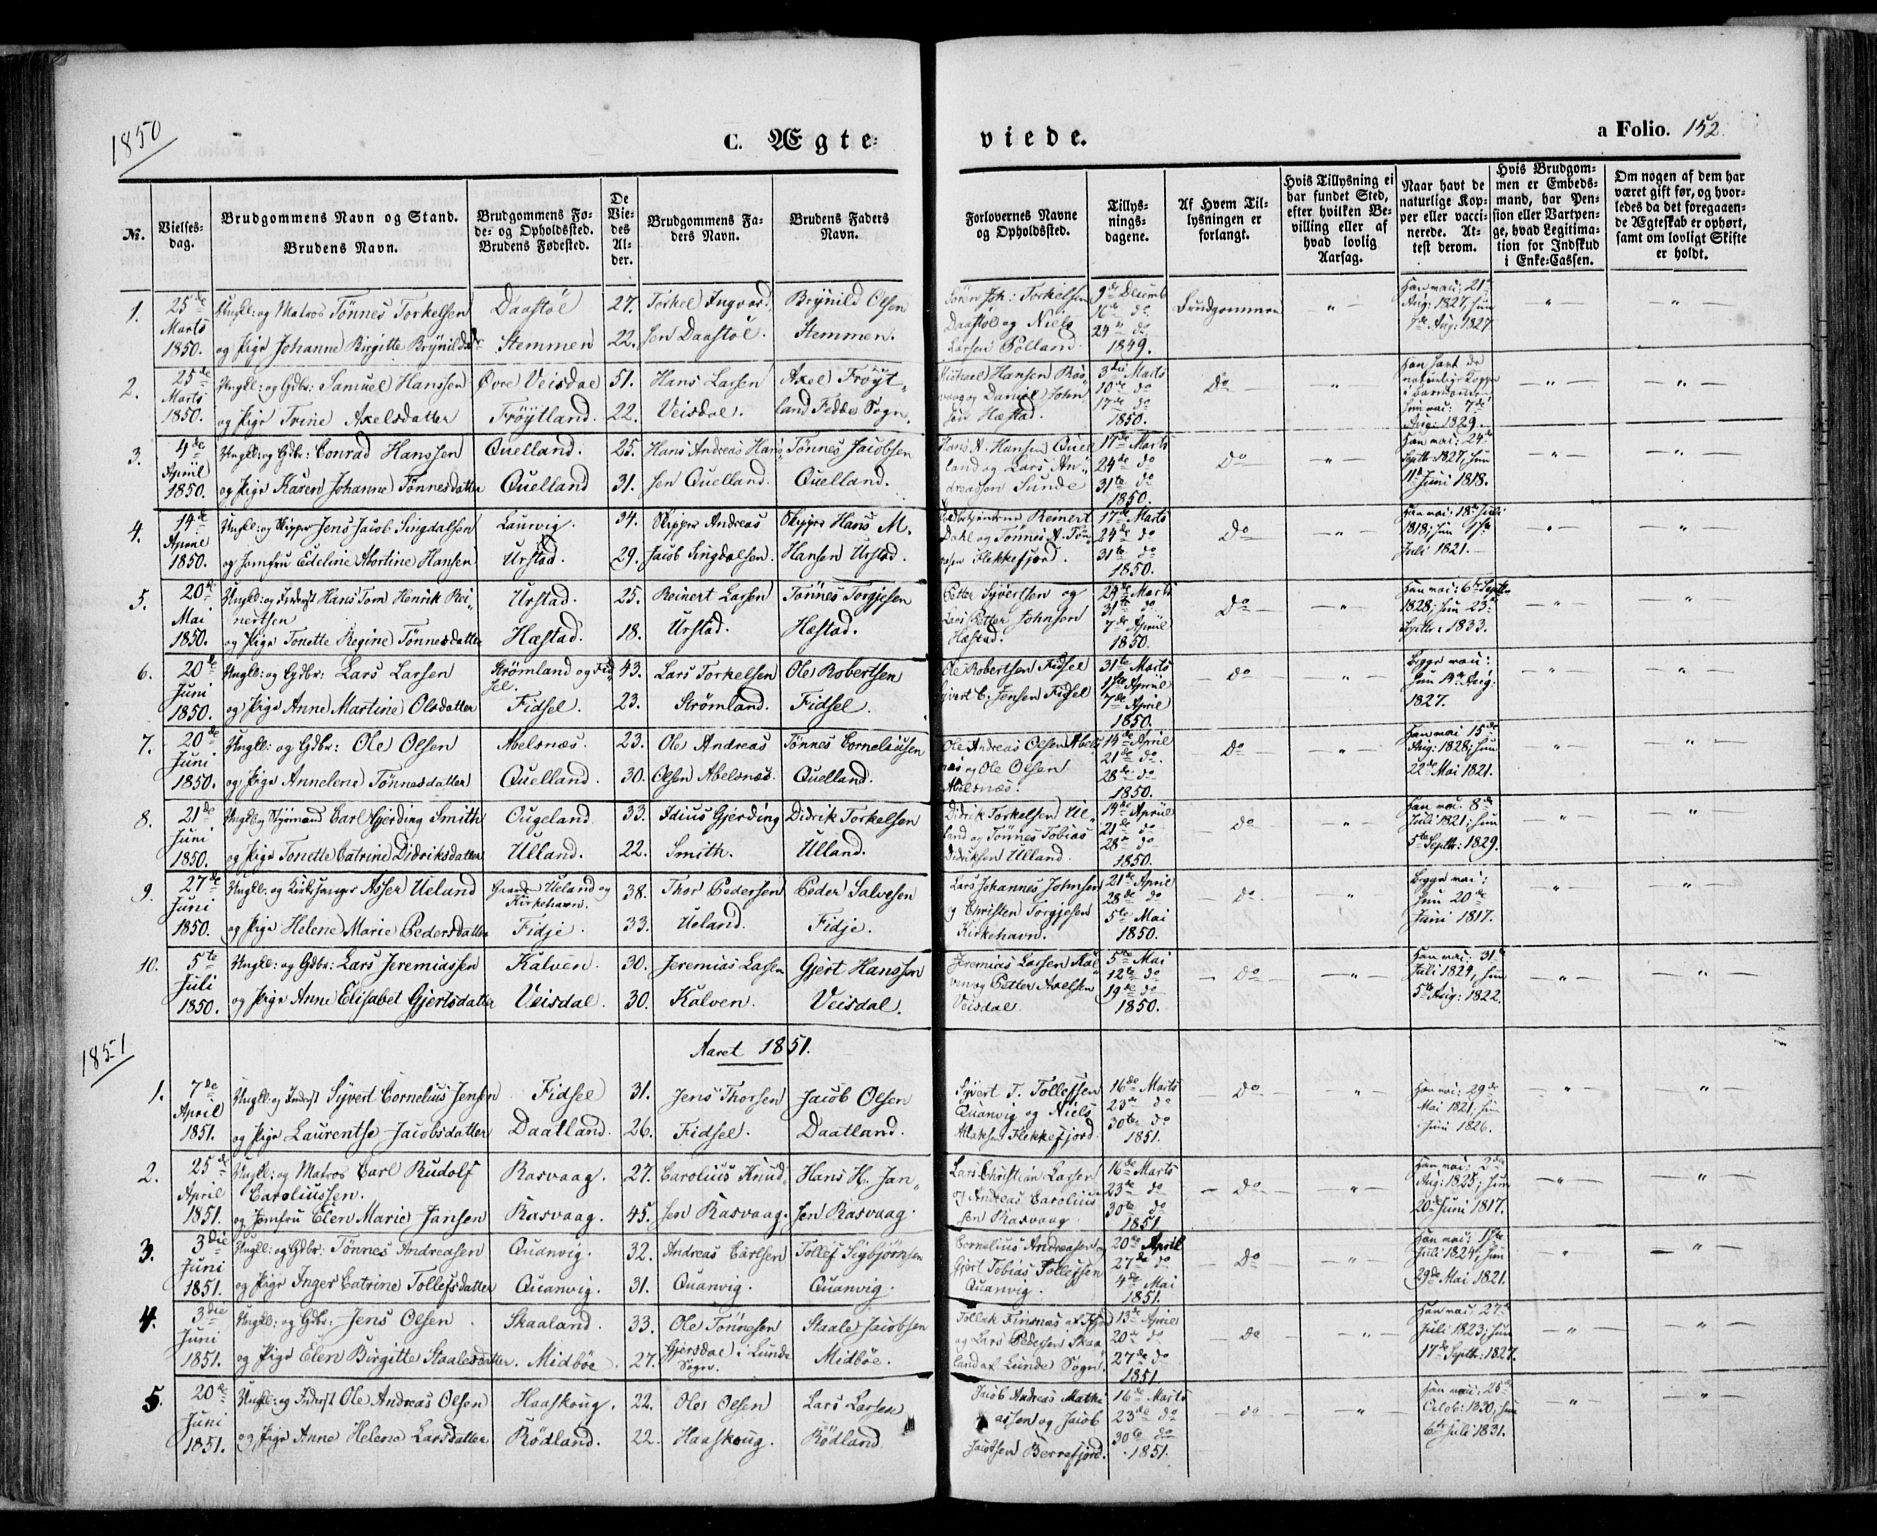 1850
C. Ægte-
viede.
a Folio. 152.
No.
Vielses-
dag.
Brudgommens Navn og Stand.
Brudens Navn.
Brudgommens Fø-
de- og Opholdssted.
Brudens Fødested.
De
Vie-
des
Al-
der.
Brudgommens Fa-
ders Navn.
Brudens Faders
Navn.
Forlovernes Navne
og Opholdssted.
Tillys-
nings-
dagene.
Af Hvem Til-
lysningen er
forlangt.
Hvis Tillysning ei
har fundet Sted,
efter hvilken Be-
villing eller af
hvad lovlig
Aarsag.
Naar havt de
naturlige Kop-
per eller vacci-
nerede. At-
test derom.
Hvis Brudgom-
men er Embeds-
mand, har Pen-
sion eller Vartpen-
ge, hvad Legitima-
tion for Indskud
i Enke-Cassen.
Om nogen af dem har
været gift før, og hvor-
ledes da det foregaaen-
de Ægteskab er ophørt,
samt om lovligt Skifte
er holdt.
1. 25de Ungkl: og Matros Tönnes Torkelsen Daastöl 27. Torkel Ingvar- Brynild Olsen Joh: Torkelsen 9de Decemb Brudgommen Han vac: 21
Marts 16de do Aug: 1827, hun
1850. og Pige Johanne Birgitte Brynildsd Stemmen 22. sen Daastöl. Stemmen. Daastöl og Niels 24de do 7de Aug: 1827
Larsen Polland. 1849.
2. 25de Ungkl: og Gdbr: Samuel Hanssen Övre Veisdal 51. Hans Larsen Axel Fröyt- Michael Hansen Ras- 3die Marts Do Han havt de
Marts vaag og Daniel John 10de do naturlige Kopper
1850. og Pige Trine Axelsdatter Fröytland. 22. Veisdal. land Fedde Sogn. sen Hæstad. 17de do i Barndommen
1850. hun vac: 7de
Aug: 1829.
3. 4de Ungkl: og Gdbr: Conrad Hanssen Quelland. 25. Hans Andreas Hans- Tönnes Jacobsen Hans A. Hansen Quel- 17de Marts Do Han vac: 24de
April land og Lars An- 24de do Septbr: 1827, hun
1850. og Pige Karen Johanne Tönnesdatter Quelland 31. sen Quelland. Quelland. dreassen Sunde 31te do 11te Juni 1818.
1850.
4. 14de Ungkl: og Skipper Jens Jacob Singdalsen Laurvig. 34. Skipper Andreas Skipper Hans M. Reinert 17de Marts Do Han vac: 18de Juli
April Dahl og Tönnes A. Tön- 24de do 1818; hun 1ste
1850. og Jomfru Edeline Martine Hansen Urstad. 29. Jacob Singdalsen. Hansen Urstad. nesen Flekkefjord. 31te do Juli 1821.
1850.
5. 20de Ungkl: og Inderst Hans Tom Henrik Rei- Urstad. 25. Reinert Larsen Tönnes Torgjesen Petter Syvertsen og 24de Marts Do Han vac: 6te Septbr
Mai nertsen Lars Petter Johnsen 31te do 1828; hun 23de
1850. og Pige Tonette Regine Tönnesdatter Hæstad. 18. Urstad. Hæstad. Hæstad. 7de April Septbr: 1833.
1850.
6. 20de Ungkl: og Gdbr: Lars Larsen Strömland og Fid- 43. Lars Torkelsen Ole Robertsen Ole Robertsen Fidsel 31te Marts do Begge vac:
Juni sel. Syvert C. Jensen Fidsel 1ste April hun Aug:
1850. og Pige Anne Martine Olsdatter Fidsel. 23. Strömland. Fidsel. 7de April 1827.
1850.
7. 20de Ungkl: og Gdbr: Ole Olsen Abelsnæs. 23. Ole Andreas Tönnes Corneliusen Ole Andreas Olsen Abels- 14de April Do Han vac: 15de
Juni næs og Ole Olsen 21de do. Aug: 1828; hun
1850. og Pige Annelene Tönnesdatter Quelland. 30. Olsen Abelsnæs. Quelland. Abelsnæs. 28de do. 22de Mai 1821.
1850.
8. 21de Ungkl: og Styrmand Carl Gjerding Smith Ougeland 33. Idius Gjerding Didrik Torkelsen Didrik Torkelsen Ul- 14de April do Han vac: 8de
Juni land og Tönnes Tobias 21de do Juli 1821; hun
1850. og Pige Tonette Catrine Didriksdatter Ulland. 22. Smith. Ulland. Didriksen Ulland. 28de do 5te Septbr: 1829.
1850.
9. 27de Ungkl: og Kirkesanger Asser Ueland Ueland og 38. Thor Pedersen Peder Salvesen Lars Johannes Johnsen 21de April do Begge vac:
Juni Kirkehavn. og Christen Torgjesen 28de do hun 20de
1850. og Pige Helene Marie Pedersdatter Fidje. 33. Ueland. Fidje. Kirkehavn. 5te Mai Juni 1817.
1850.
10. 5te Ungkl: og Gdbr: Lars Jeremiassen Kalven. 30. Jeremias Larsen Gjert Hanssen Jeremias Larsen Kal- 5te Mai Do Han vac: 31te
Juli ven og Petter Axelsen 12te do Juli 1824, hun
1850. og Pige Anne Elisabet Gjertsdatter Veisdal. 30. Kalven. Veisdal. Veisdal. 19de do 5te Aug: 1822.
1850.
1851
Aaret 1851.
1. 7de Ungkl: og Inderst Syvert Cornelius Jensen Fidsel 31. Jens Thorsen Jacob Olsen Syvert T. Tollefsen 16de Marts Do Han vac: 29de
April Quanvig og Niels 23de do Mai 1821, hun
1851. og Pige Laurentse Jacobsdatter Daatland. 26. Fidsel. Daatland. Aslaksen Flekkefjord. 30te do Juni 1826.
1851.
2. 25de Ungkl: og Matros Carl Rudolf Rasvaag. 27. Carolius Knud- Hans H. Jan- Lars Christian Larsen 16de Marts Do Han vac: 3die
April Caroliussen. og Andreas Carolius- 23de do Aug: 1825; hun
1851. og Jomfru Elen Marie Jansen Rasvaag. 45. sen Rasvaag. sen Rasvaag. sen Rasvaag 30te do 20de Juni 1817.
1851.
3. 3die Ungkl: og Gdbr: Tönnes Andreasen Quanvig. 32. Andreas Carlsen Tollef Sigbjörnsen Cornelius Andreasen og 20de April Do Han vac: 1ste
Juni Gjert Tobias Tollefsen 27de do Juli 1824, hun
1851. og Pige Inger Catrine Tollefsdatter Quanvig. 31. Quanvig. Quanvig. Quanvig. 4de Mai 29de Mai 1821.
1851.
4. 3die Ungkl: og Gdbr: Jens Olsen Skaaland. 33. Ole Tönnesen Staale Jacobsen Tollak Finsnæs 13de April Do Han vac: 27de
Juni og Lars Pedersen Skaa- 20de do Juli 1823; hun
1851. og Pige Elen Birgitte Staalesdatter. Midböe. 27. Gjersdal i Lunde Sogn. Midböe. land af Lunde Sogn. 27de do 17de Septbr: 1827.
1851.
5. 20de Ungkl: og Inderst Ole Andreas Olsen Haaskoug. 22. Ole Olsen Lars Larsen Jacob Andreas Mathi- 16de Marts do Han vac: 25de
Juni assen og Jacob 23de do Octob: 1830; hun
1851. og Pige Anne Helene Larsdatter Rödland. 22. Haaskoug. Rödland Jacobsen Berrefjord. 30te do 6te Juli 1831.
1851.